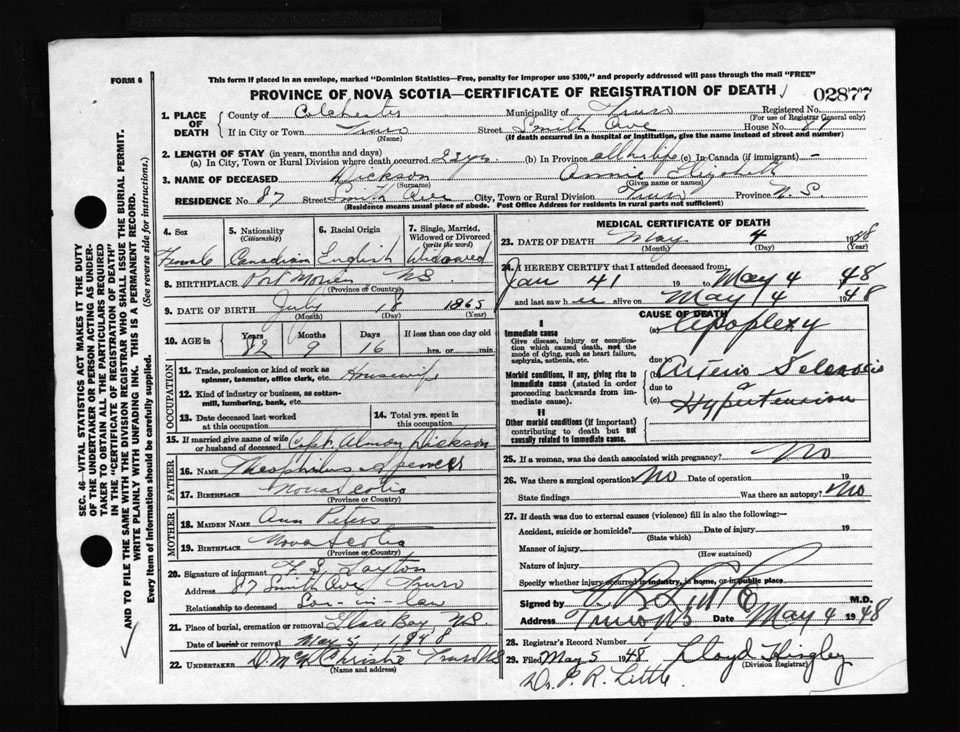 FORM 6
This form if placed in an envelope, marked "Dominion Statistics—Free, penalty for improper use $300," and properly addressed will pass through the mail "FREE"
PROVINCE OF NOVA SCOTIA—CERTIFICATE OF REGISTRATION OF DEATH
02877
1. PLACE OF DEATH
County of Colchester Municipality of Truro Registered No.
(For use of Registrar General only)
If in City or Town Truro Street Smith Ave House No. 87
(Name) (If death occurred in a hospital or institution, give the name instead of street and number)
2. LENGTH OF STAY (in years, months and days)
(a) In City, Town or Rural Division where death occurred 22 yrs (b) In Province all her life (c) In Canada (if immigrant) -
3. NAME OF DECEASED Dickson Annie Elizabeth
(Surname) (Given name or names)
RESIDENCE No. 87 Street Smith Ave City, Town or Rural Division Truro Province N.S.
(Residence means usual place of abode. Post Office Address for residents in rural parts not sufficient)
4. Sex Female
5. Nationality (Citizenship) Canadian
6. Racial Origin English
7. Single, Married, Widowed or Divorced (write the word) Widowed
8. BIRTHPLACE Port Morien NS
(Province or Country)
9. DATE OF BIRTH July 18 1865
(Month) (Day) (Year)
10. AGE in Years 82 Months 9 Days 16 If less than one day old hrs. or min.
OCCUPATION
11. Trade, profession or kind of work as spinner, teamster, office clerk, etc. Housewife
12. Kind of industry or business, as cotton-mill, lumbering, bank, etc.
13. Date deceased last worked at this occupation
14. Total yrs. spent in this occupation
15. If married give name of wife or husband of deceased Capt. Almon Dickson
FATHER
16. NAME Theophilus Spencer
17. BIRTHPLACE Nova Scotia
(Province or Country)
MOTHER
18. MAIDEN NAME Ann Peters
19. BIRTHPLACE Nova Scotia
(Province or Country)
20. Signature of informant F. S. Layton
Address 87 Smith Ave Truro
Relationship to deceased Son-in-law
21. Place of burial, cremation or removal Glace Bay NS
Date of burial or removal May 5, 1948
22. UNDERTAKER Christie Truro NS
(Name and address)
MEDICAL CERTIFICATE OF DEATH
23. DATE OF DEATH May 4 1948
(Month) (Day) (Year)
24. I HEREBY CERTIFY that I attended deceased from:
Jan 41 19 to May 4 48
and last saw her alive on May 4 1948
CAUSE OF DEATH
I
Immediate cause
Give disease, injury or complication which caused death, not the mode of dying, such as heart failure, asphyxia, asthenia, etc.
(a) Apoplexy
due to
Morbid conditions, if any, giving rise to immediate cause (stated in order proceeding backwards from immediate cause).
(b) Arterio Sclerosis
due to
(c) Hypertension
II
Other morbid conditions (if important) contributing to death but not causally related to immediate cause.
25. If a woman, was the death associated with pregnancy? No
26. Was there a surgical operation No Date of operation 19
State findings Was there an autopsy? No
27. If death was due to external causes (violence) fill in also the following:—
Accident, suicide or homicide? Date of injury 19
(State which)
Manner of injury
(How sustained)
Nature of injury
Specify whether injury occurred in industry, in home, or in public place
Signed by M.D.
Address Truro NS Date May 4 1948
28. Registrar's Record Number 1
29. Filed May 5 1948 Lloyd Kingley
(Division Registrar)
Dr. P. R. Little.
SEC. 46—VITAL STATISTICS ACT MAKES IT THE DUTY
OF THE UNDERTAKER OR PERSON ACTING AS UNDERTAKER
TO OBTAIN ALL THE PARTICULARS REQUIRED
IN THE "CERTIFICATE OF REGISTRATION OF DEATH"
AND TO FILE THE SAME WITH THE DIVISION REGISTRAR WHO SHALL ISSUE THE BURIAL PERMIT.
WRITE PLAINLY WITH UNFADING INK. THIS IS A PERMANENT RECORD.
Every item of Information should be carefully supplied. (See reverse side for instructions.)